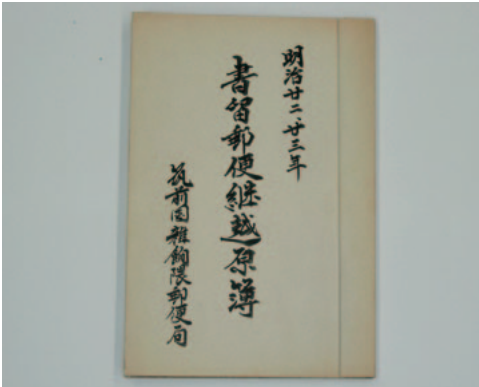 明治廿二、廿三年
書留郵便継越原簿
筑前国雑餉隈郵便局